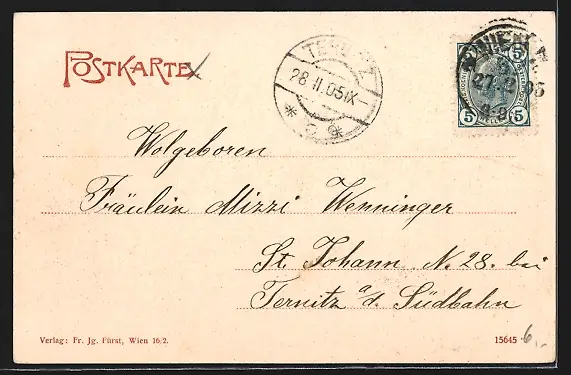 POSTKARTE
TERNITZ
28 II 05 IX
5 5
WIEN
27.2 05
5 5
Wolgeboren
Fräulein Mizzi Wenninger
St. Johann N. 28. bei
Ternitz a/d. Südbahn
Verlag: Fr. Jg. Fürst, Wien 16/2.
15645
6.-